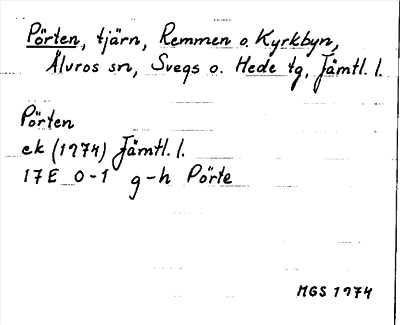 Pörten, tjärn, Remmen o. Kyrkbyn,
Älvros sn, Svegs o. Hede tg, Jämtl. l.
Pörten
ek (1974) Jämtl. l.
17E 0-1 g-h Pörte
MGS 1974